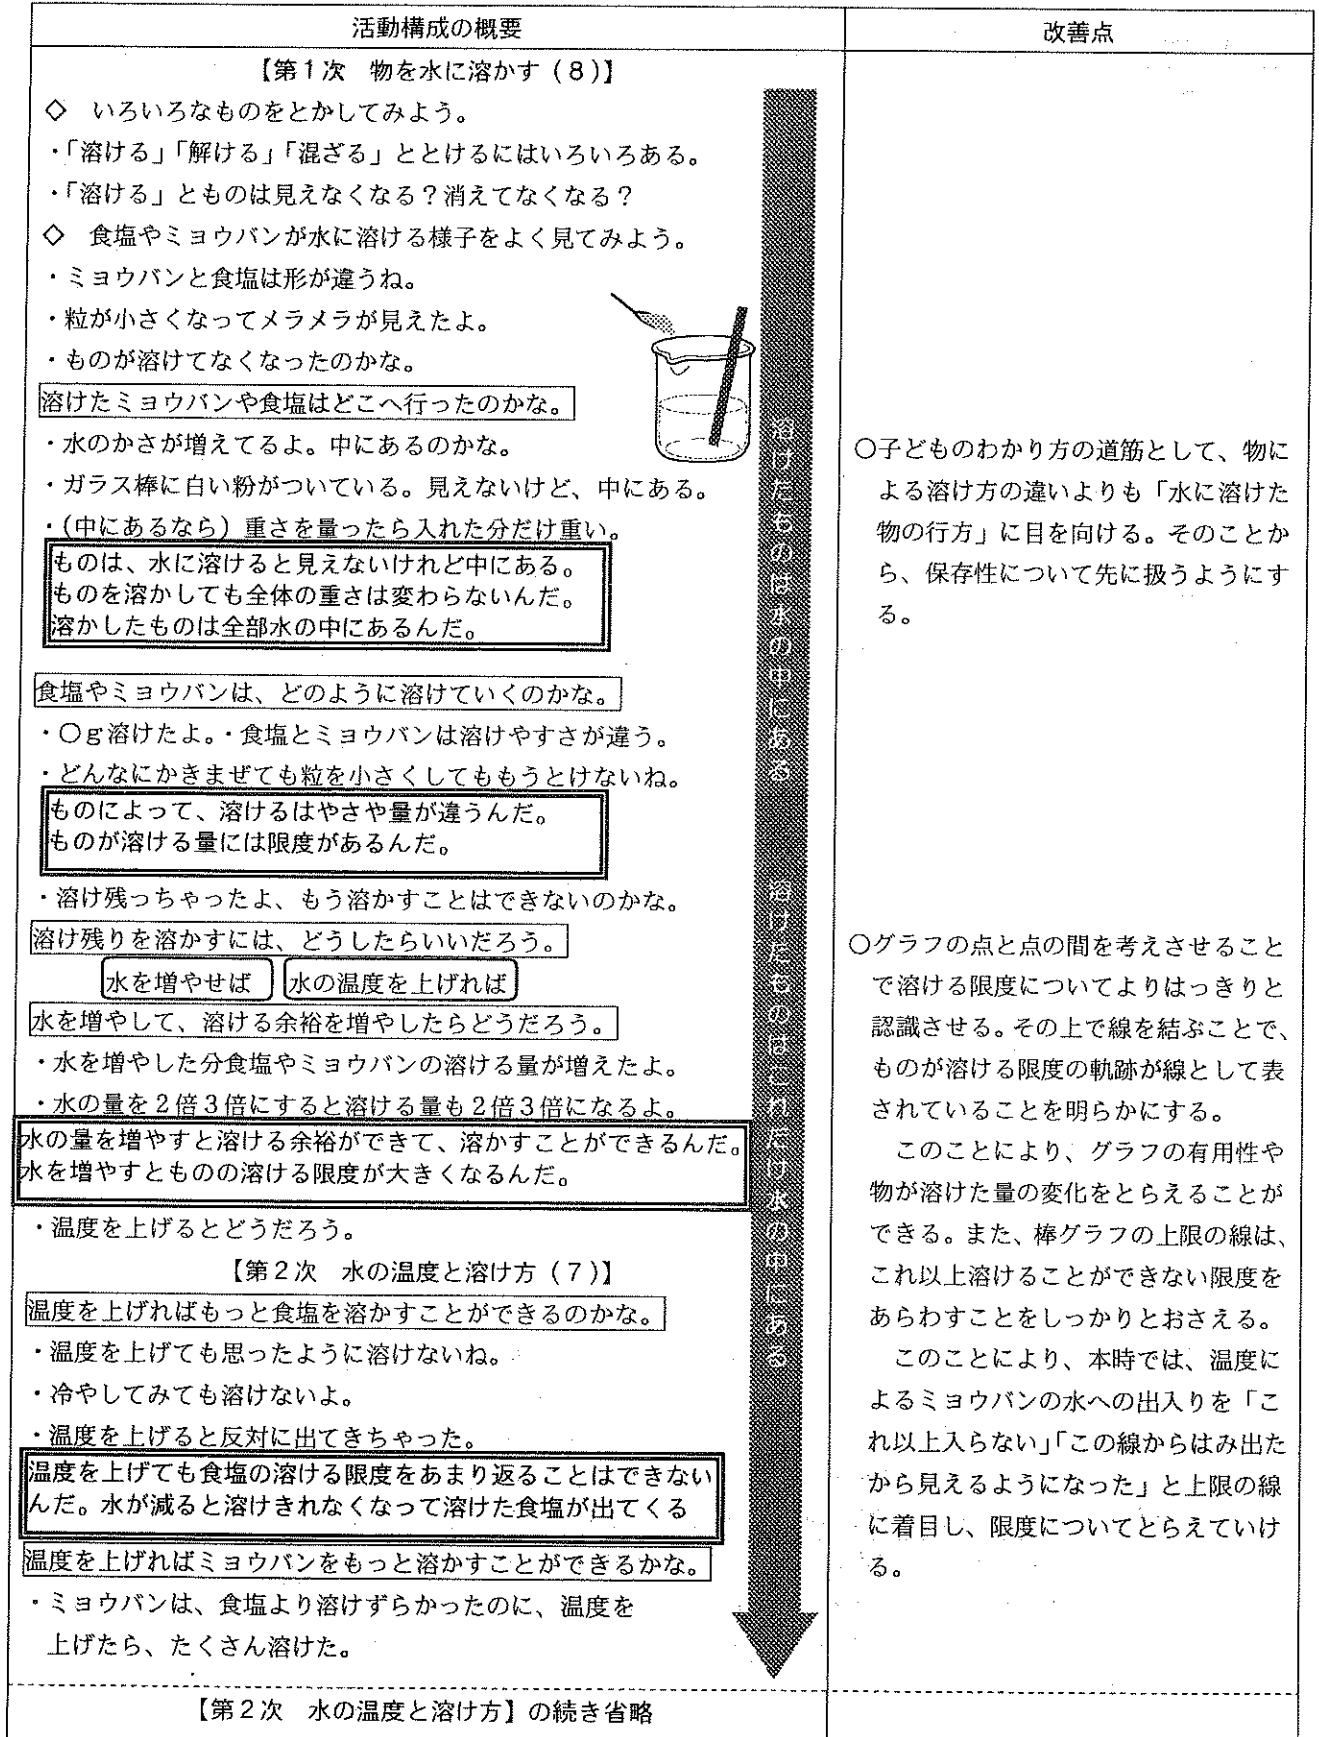 活動構成の概要
改善点
【第1次　物を水に溶かす（8）】
◇　いろいろなものをとかしてみよう。
・「溶ける」「解ける」「混ざる」ととけるにはいろいろある。
・「溶ける」とものは見えなくなる？消えてなくなる？
◇　食塩やミョウバンが水に溶ける様子をよく見てみよう。
・ミョウバンと食塩は形が違うね。
・粒が小さくなってメラメラが見えたよ。
・ものが溶けてなくなったのかな。
溶けたミョウバンや食塩はどこへ行ったのかな。
・水のかさが増えてるよ。中にあるのかな。
・ガラス棒に白い粉がついている。見えないけど、中にある。
・（中にあるなら）重さを量ったら入れた分だけ重い。
ものは、水に溶けると見えないけれど中にある。
ものを溶かしても全体の重さは変わらないんだ。
溶かしたものは全部水の中にあるんだ。
食塩やミョウバンは、どのように溶けていくのかな。
・〇g溶けたよ。・食塩とミョウバンは溶けやすさが違う。
・どんなにかきまぜても粒を小さくしてももうとけないね。
ものによって、溶けるはやさや量が違うんだ。
ものが溶ける量には限度があるんだ。
・溶け残っちゃったよ、もう溶かすことはできないのかな。
溶け残りを溶かすには、どうしたらいいだろう。
水を増やせば　水の温度を上げれば
水を増やして、溶ける余裕を増やしたらどうだろう。
・水を増やした分食塩やミョウバンの溶ける量が増えたよ。
・水の量を2倍3倍にすると溶ける量も2倍3倍になるよ。
水の量を増やすと溶ける余裕ができて、溶かすことができるんだ。
水を増やすとものの溶ける限度が大きくなるんだ。
・温度を上げるとどうだろう。
【第2次　水の温度と溶け方（7）】
温度を上げればもっと食塩を溶かすことができるのかな。
・温度を上げても思ったように溶けないね。
・冷やしてみても溶けないよ。
・温度を上げると反対に出てきちゃった。
温度を上げても食塩の溶ける限度をあまり返ることはできない
んだ。水が減ると溶けきれなくなって溶けた食塩が出てくる
温度を上げればミョウバンをもっと溶かすことができるかな。
・ミョウバンは、食塩より溶けずらかったのに、温度を
上げたら、たくさん溶けた。
【第2次　水の温度と溶け方】の続き省略
溶けたものは水の中にある　溶けたものはこれだけ水の中にある
〇子どものわかり方の道筋として、物に
よる溶け方の違いよりも「水に溶けた
物の行方」に目を向ける。そのことか
ら、保存性について先に扱うようにす
る。
〇グラフの点と点の間を考えさせること
で溶ける限度についてよりはっきりと
認識させる。その上で線を結ぶことで、
ものが溶ける限度の軌跡が線として表
されていることを明らかにする。
このことにより、グラフの有用性や
物が溶けた量の変化をとらえることが
できる。また、棒グラフの上限の線は、
これ以上溶けることができない限度を
あらわすことをしっかりとおさえる。
このことにより、本時では、温度に
よるミョウバンの水への出入りを「こ
れ以上入らない」「この線からはみ出た
から見えるようになった」と上限の線
に着目し、限度についてとらえていけ
る。